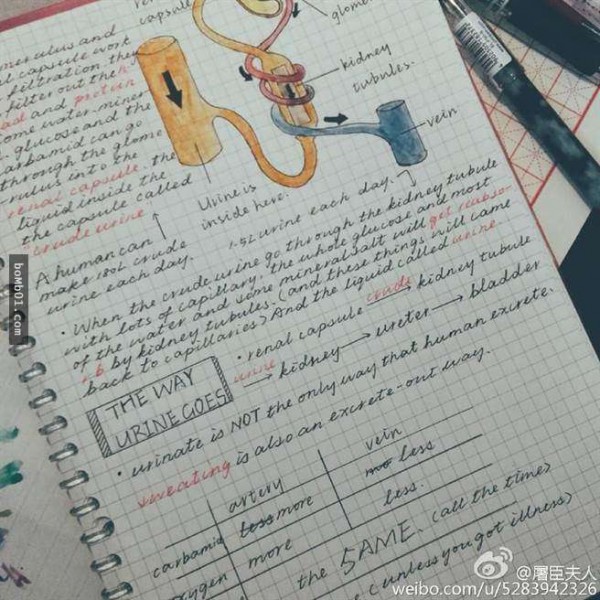 capsule
glome
kidney
tubules.
vein
Urine is
inside here.
merulus and
capsule work
filtration, they
filter out the
and protein
some water, miner
glucose and the
carbamid can go
through the glome
rulus into the
renal capsule. the
liquid inside the
the capsule called
crude urine
A human can
make 180L crude
urine each day.
1.5L urine each day.
• When the crude urine go through the kidney tubule
with lots of capillary, the whole glucose and most
of the water and some mineral salt will get reabso-
r b by kidney tubules. (and these things will came
back to capillaries) And the liquid called urine.
• renal capsule crude kidney tubule
urine kidney ureter bladder
THE WAY
URINE GOES
• urinate is NOT the only way that human excrete.
sweating is also an excrete-out way.
artery vein
carbamid less more less
oxygen more less.
the SAME. (all the time)
(unless you got illness)
bomb01.com
@屠臣夫人
weibo.com/u/5283942326